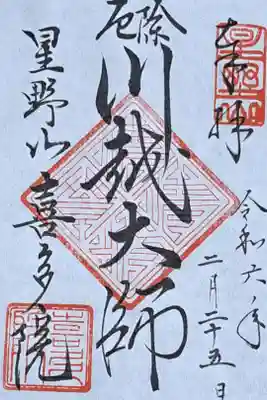 奉拝
令和六年
二月二十五日
厄除
川越大師
星野山喜多院